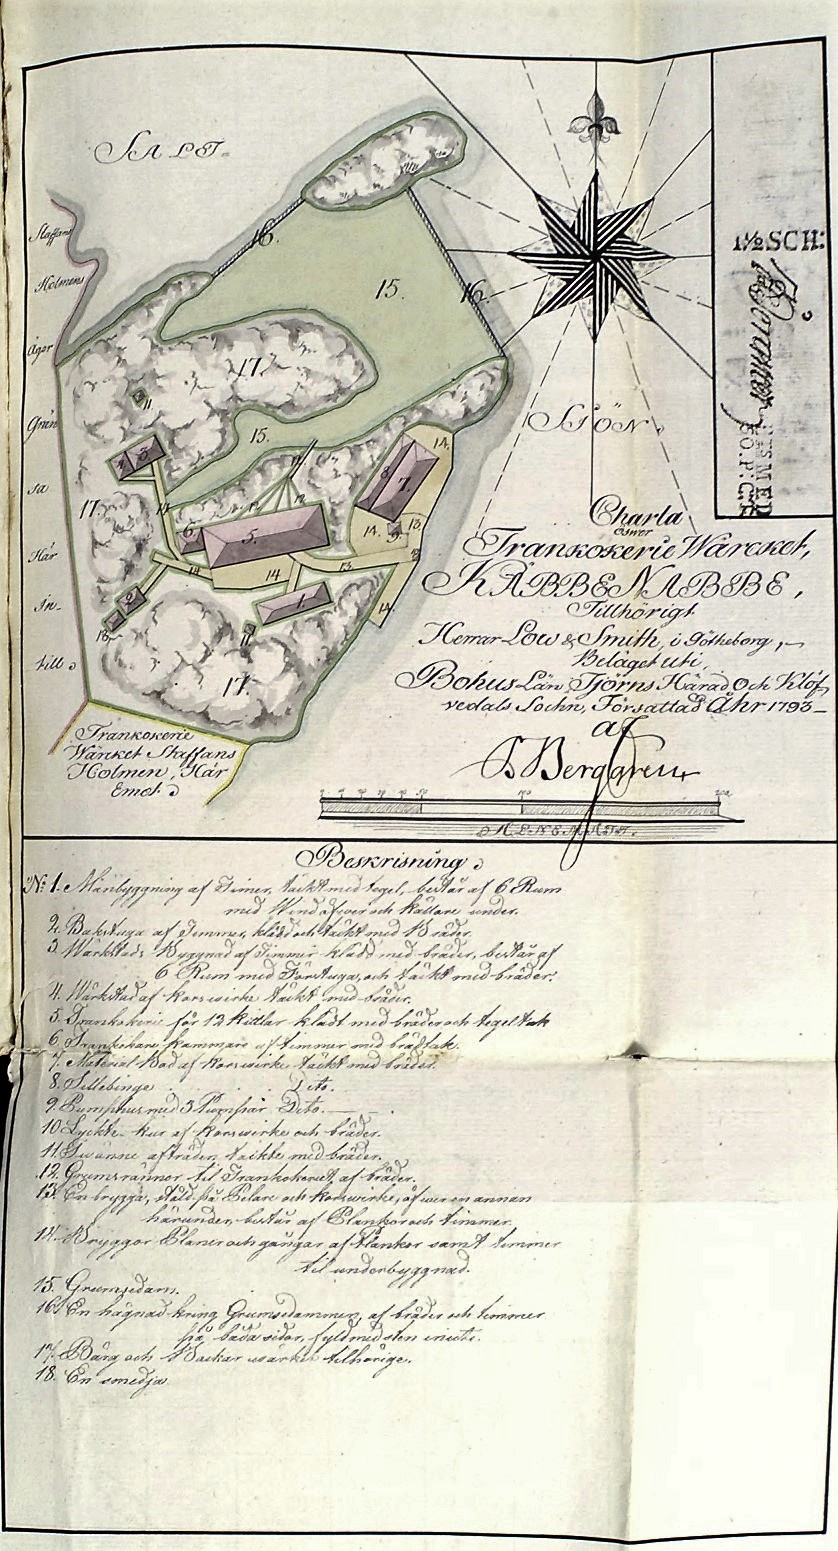 SALT=
SJÖN.
Staffans
Holmens
Äger
Grän
sa
Här
in-
till
16.
15.
16.
17.
11.
15.
3
17.
14
12
12
12
6.
5.
8
7.
14.
14.
9
13
14
14
13.
14
2
18
1.
11
17.
1½ SCH:
Charta
öfwer
Trankokerie Wärcket,
KÄBBENABBE,
Tillhörigt
Herrar Low & Smith, i Götheborg,
Beläget uti,
Bohus-Län Tjörns Härad Och Klöf,
vedals Sochn, Författad Åhr 1793
af
Berggren
Trankokerie
Wärcket Staffans
Holmen, Här
Emot
ALNEMÅTT.
Beskrifning.
N:o 1. Manbyggning af Timer, täckt med tegel, bestär af 6 Rum
med Wind öfwer och källare under.
2. Bakstuga af Timmer, klädd och täckt med Bräder.
3. Wärkstads Byggnad af Timmer klädd med bräder, bestär af
6 Rum med Förstuga, och täckt med bräder.
4. Wärkstad af korswirke täckt med bräder.
5. Trankokerie för 12 kitlar klädt med bräder och tegeltak
6. Trankokare kammare af timmer med brädtak.
7. Material Bod af korswirke täckt med bräder.
8. Sillebinge Dito.
9. Pumphus med 3 Pumpar Dito.
10. Lyckte-kur af korswirke och bräder.
11. Twänne afträden, täckte med bräder.
12. Grumsrännor til Trankokeriet, af bräder.
13. En brygga, stäld på Pelare och korswirke, öfwer en annan
härunder, bestär af Plankor och timmer.
14. Bryggor Planer och gångar af Plankor samt timmer
til underbyggnad.
15. Grumsedam.
16. En hägnad kring Grumsedammen, af bräder och timmer
på båda sidor, fyld med sten uti.
17. Bärg och Backar wärket tilhörige.
18. En smedja